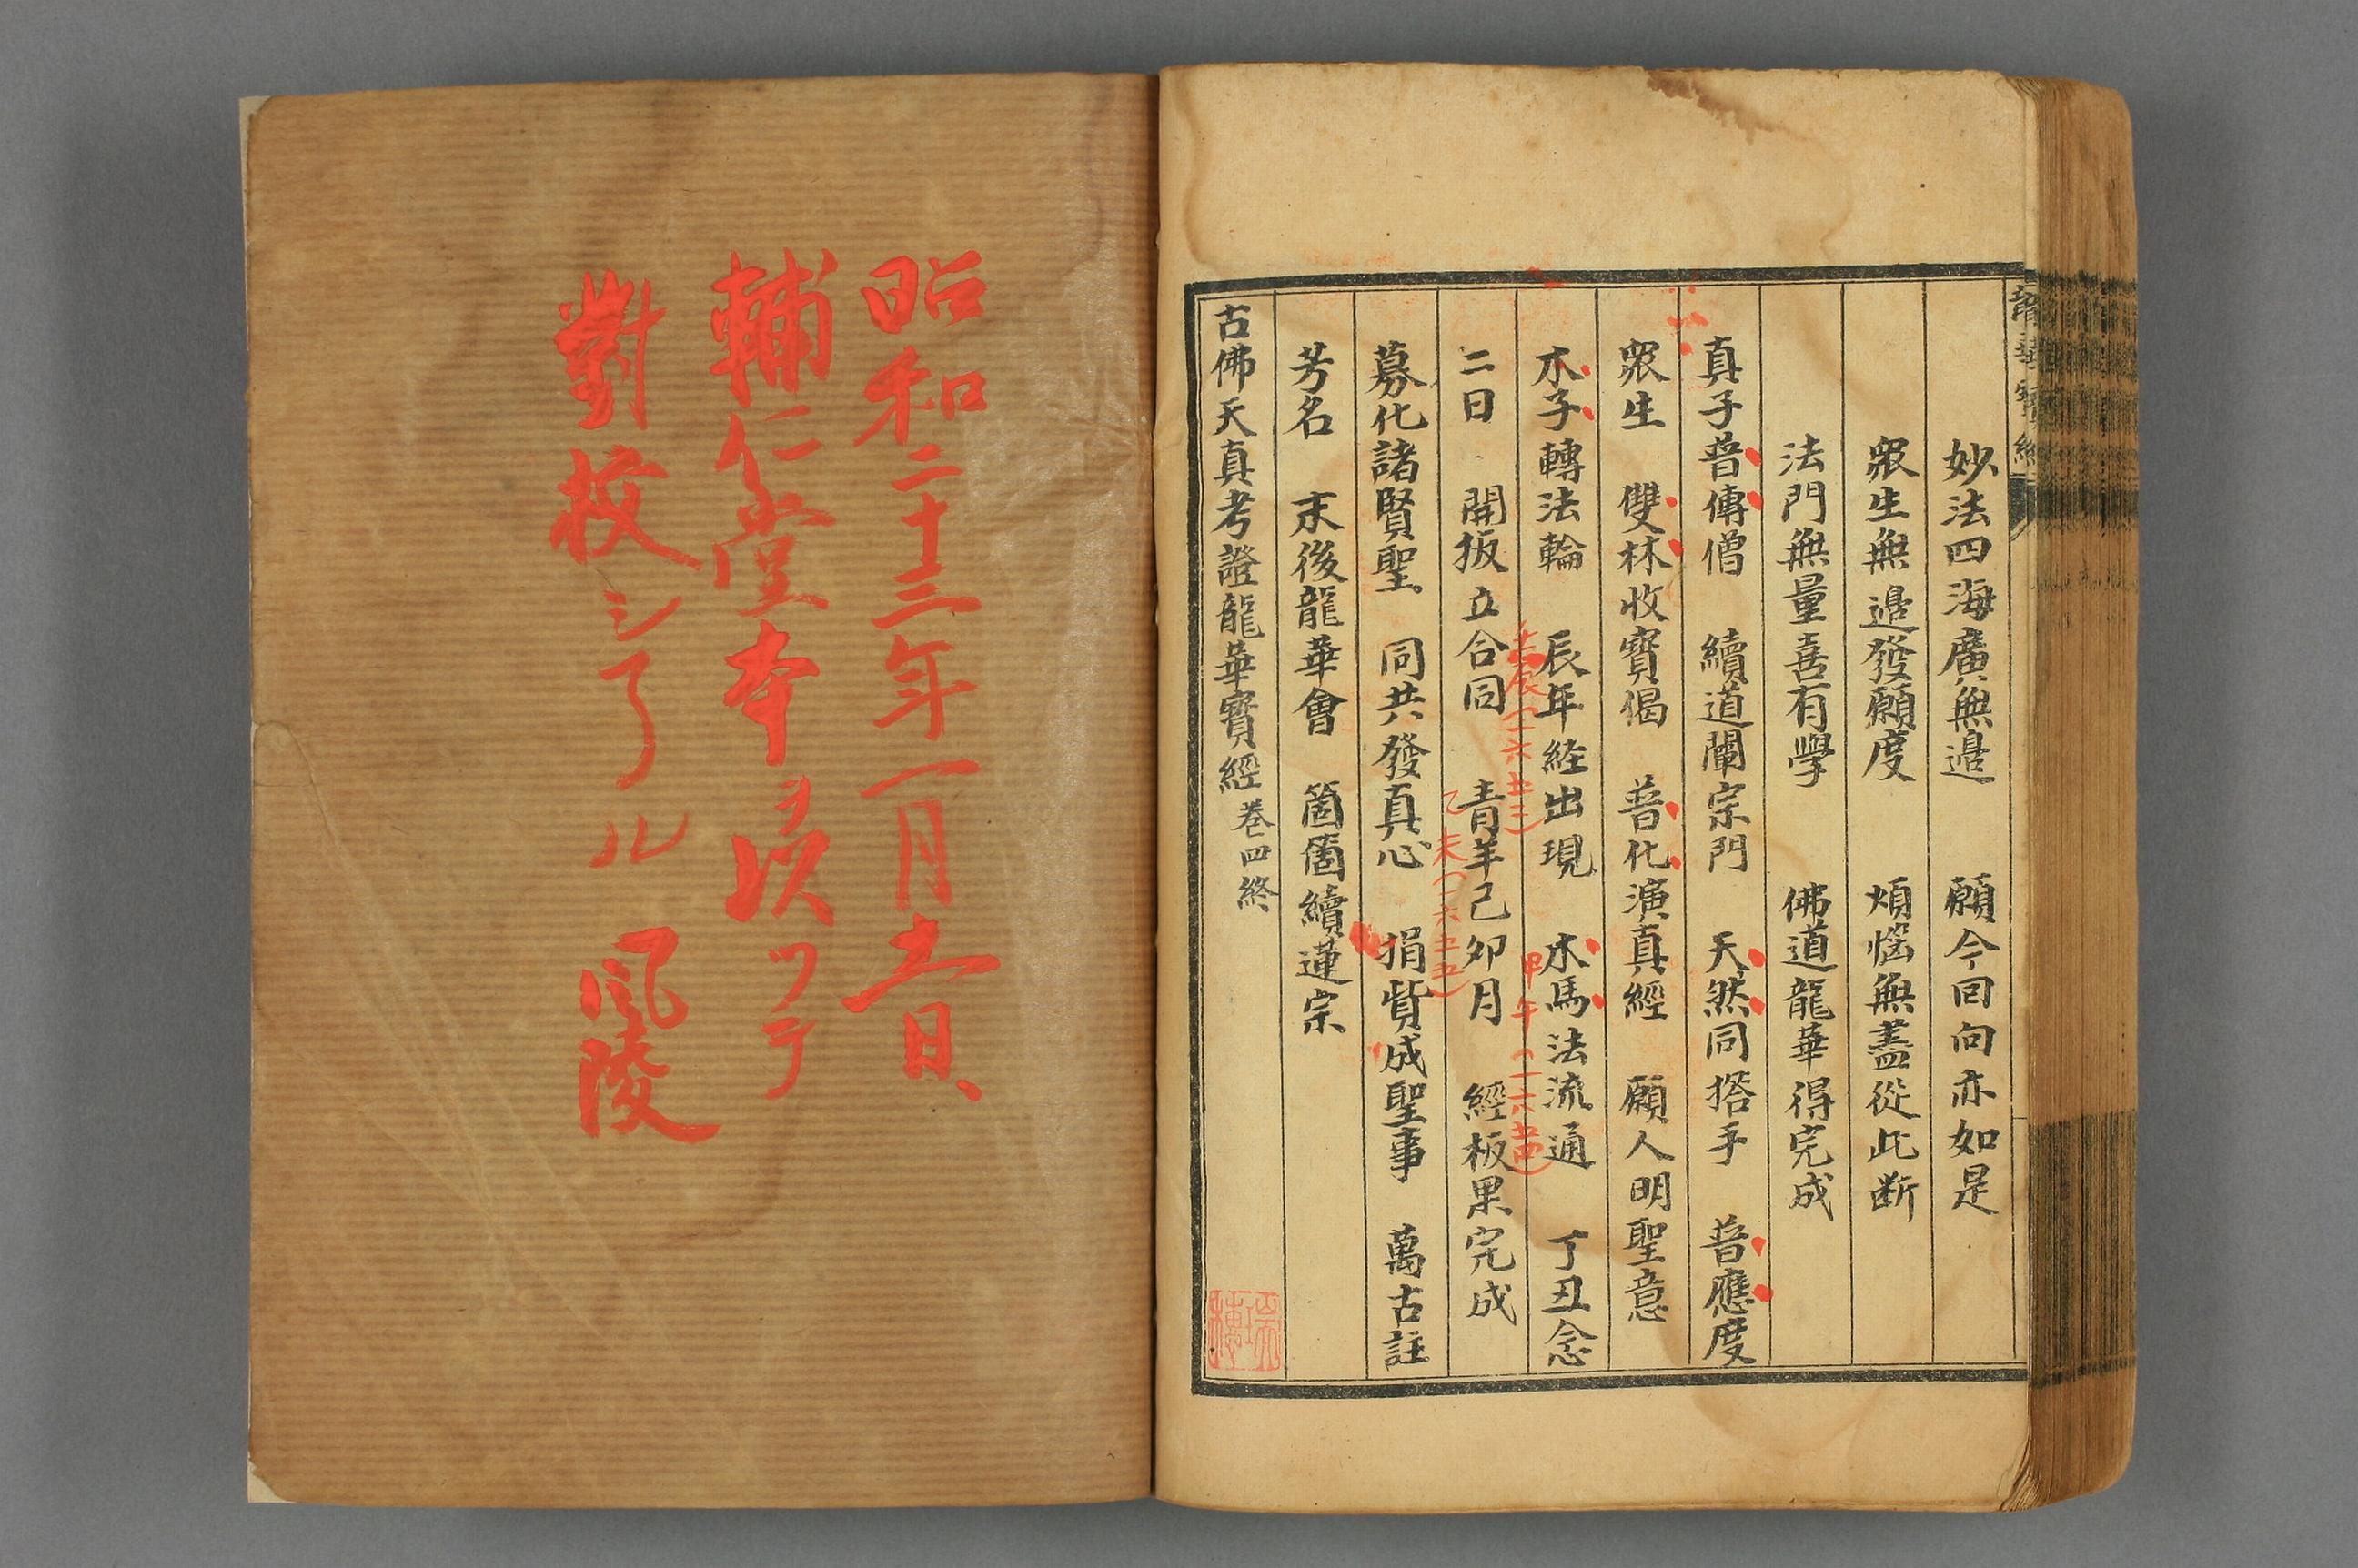 龍華寶經
妙法四海廣無邊　願今回向亦如是
眾生無邊發願度　煩惱無盡從此断
法門無量喜有學　佛道龍華得完成
真子普傳僧　續道闡宗門　天然同搭手　普應度
眾生　雙林收寶偈　普化演真經　願人明聖意
木子轉法輪　辰年経出現　水馬法流通　丁丑念
壬辰（一六五二）
甲午（一六五四）
二日　開板立合同　青羊己卯月　經板果完成
乙未（一六五五）
募化諸賢聖　同共發真心　捐貲成聖事　萬古註
芳名　末後龍華會　箇箇續蓮宗
古佛天真考證龍華寶經 卷四終
昭和二十三年一月十一日、
輔仁堂本ヲ以ツテ
對校シ了ル　風陵